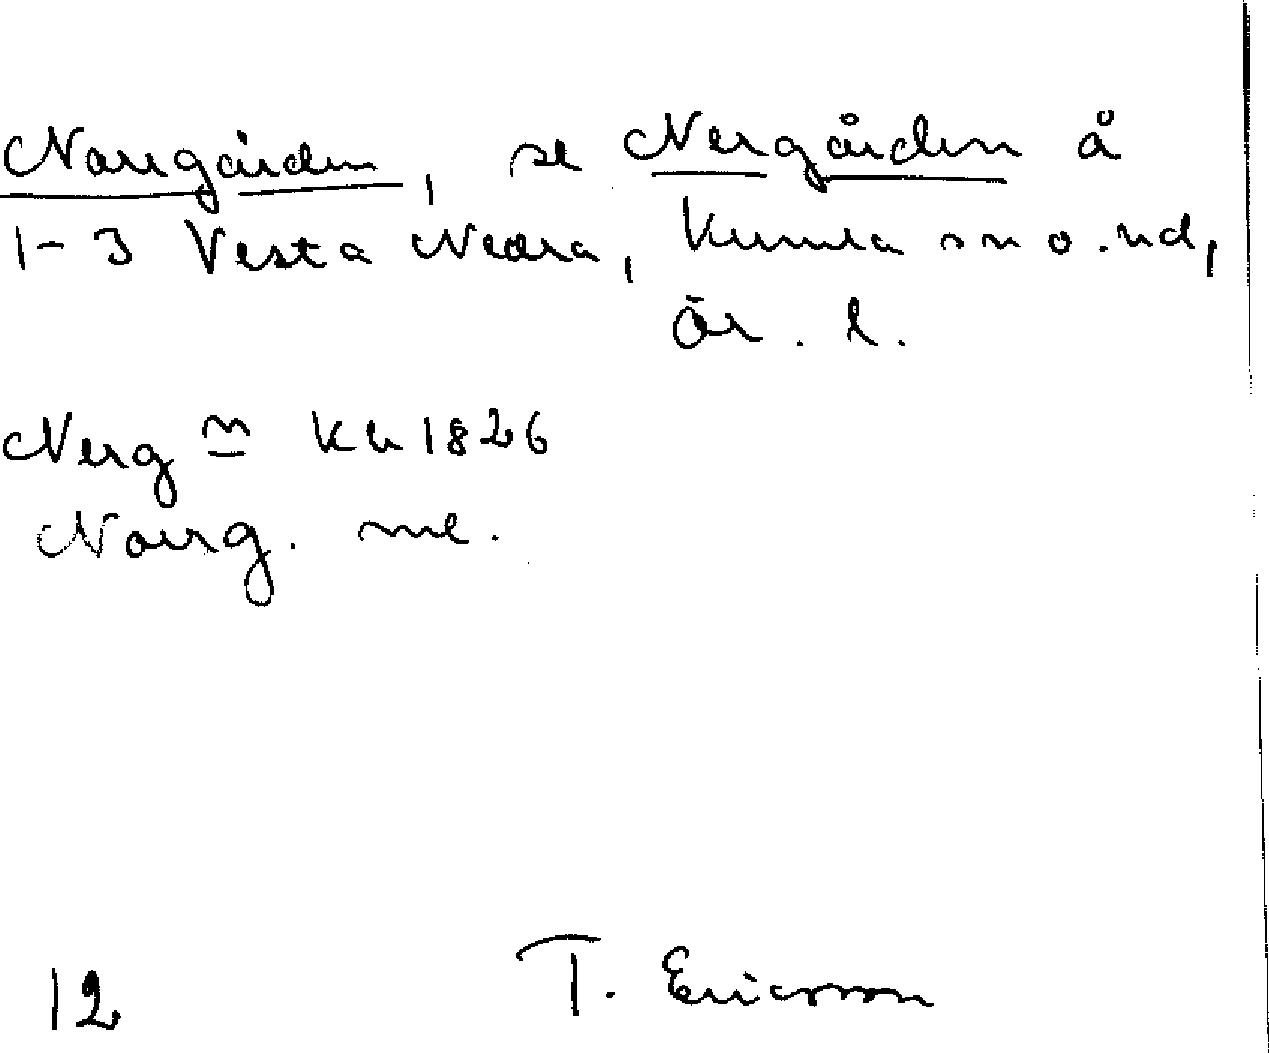 Norrgården, se Nergården å
1-3 Vesta Nedra, Kumla sn o. hd,
Ör. l.
Nerg ≃ Kh 1826
Norrg. ml.
12 T. Ericsson